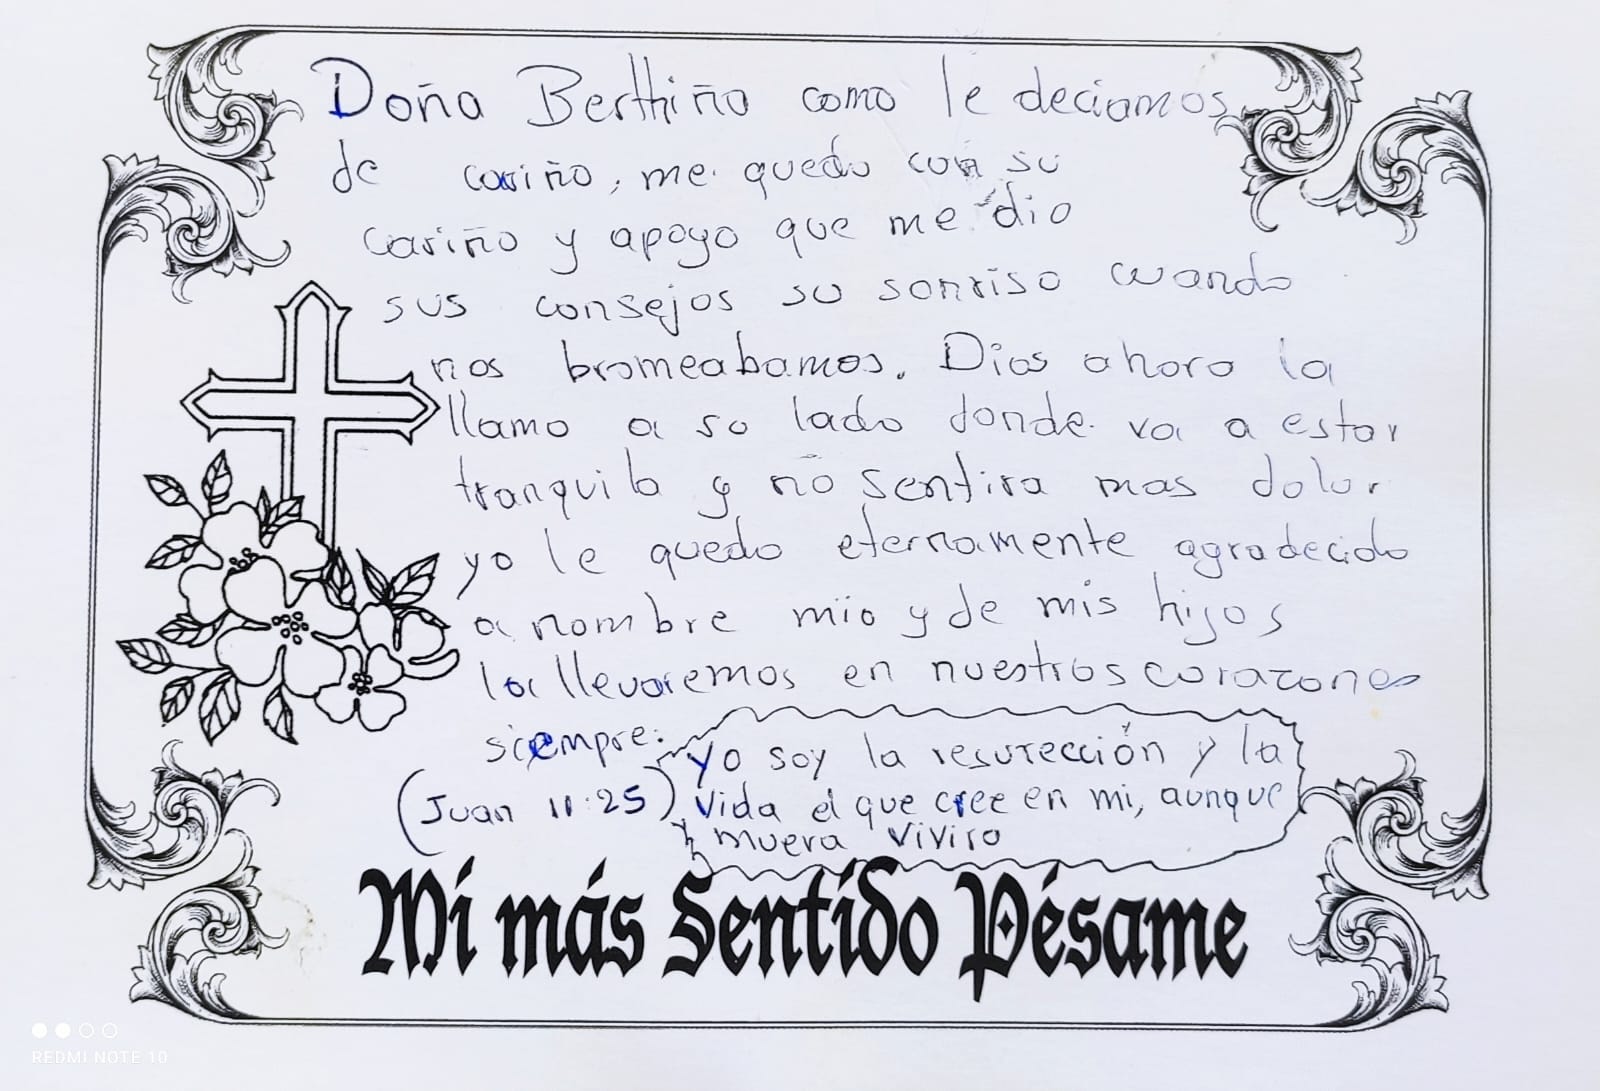 Doña Berthiña como le deciamos
de cariño, me quedo con su
cariño y apoyo que me dio
sus consejos su sonrisa cuando
nos bromeabamos. Dios ahora la
llamo a su lado donde va a estar
tranquila y no sentira mas dolor
yo le quedo eternamente agradecido
a nombre mio y de mis hijos
la llevaremos en nuestros corazones
siempre.
yo soy la resurección y la
(Juan 11:25) vida el que cree en mi, aunque
muera vivira
Mi más Sentido Pésame
REDMI NOTE 10